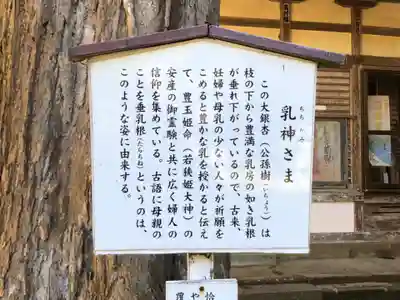 乳神さま
ちち かみ
この大銀杏（公孫樹（いちょう））は
枝の下から豊満な乳房の如き乳根
が垂れ下がっているので、古来、
妊婦や母乳の少ない人々が祈願を
こめると豊かな乳を授かると伝え
て、豊玉姫命（若狭姫大神）の
安産の御霊験と共に広く婦人の
信仰を集めている。古語に母親の
ことを垂乳根（たらちね）というのは、
このような姿に由来する。